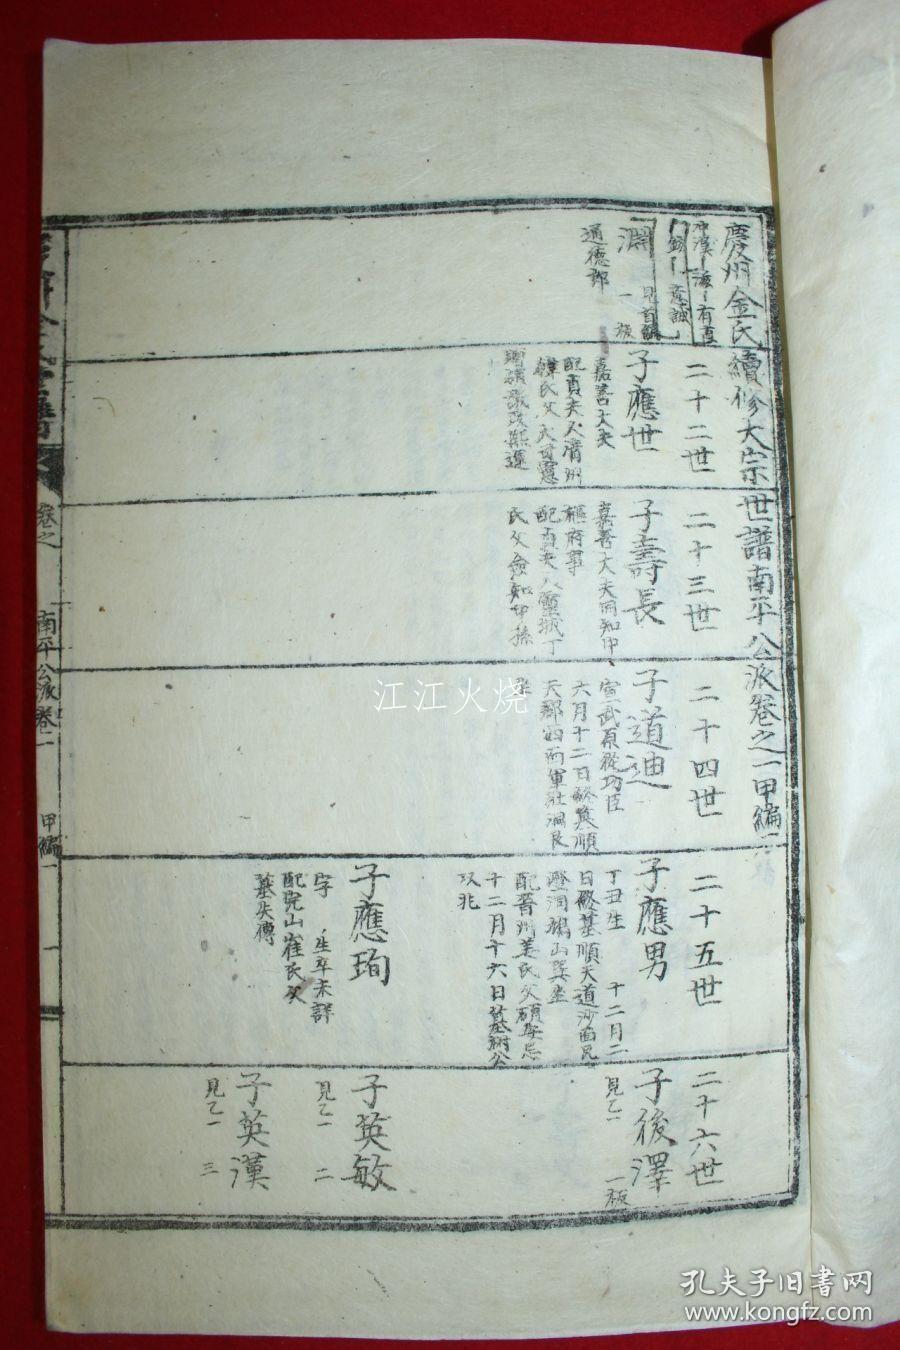 慶州金氏續修大宗世譜南平公派卷之一甲編一
淵
見首編
一板
通德郎
二十二世
子應世
嘉善大夫
配貞夫人清州
韓氏父大司憲
二十三世
子壽長
嘉善大夫同知中
樞府事
配貞夫人靈城丁
氏父僉知中孫
二十四世
子道迪
宣武原從功臣
六月十二日終葬順
天郡西面軍社洞艮
坐
二十五世
子應男
丁丑生 十二月二
日終墓順天道沙面民
燈洞鵂山巽坐
配晉州姜氏父碩學忌
十二月十六日墓祔公
以兆
子應珣
字 生卒未詳
配完山崔氏父
墓失傳
二十六世
子後澤
見乙一 一板
子英敏
見乙一 二
子英漢
見乙一 三
卷之一
南平公派卷一
甲編一
一
江江火烧
孔夫子旧书网
www.kongfz.com